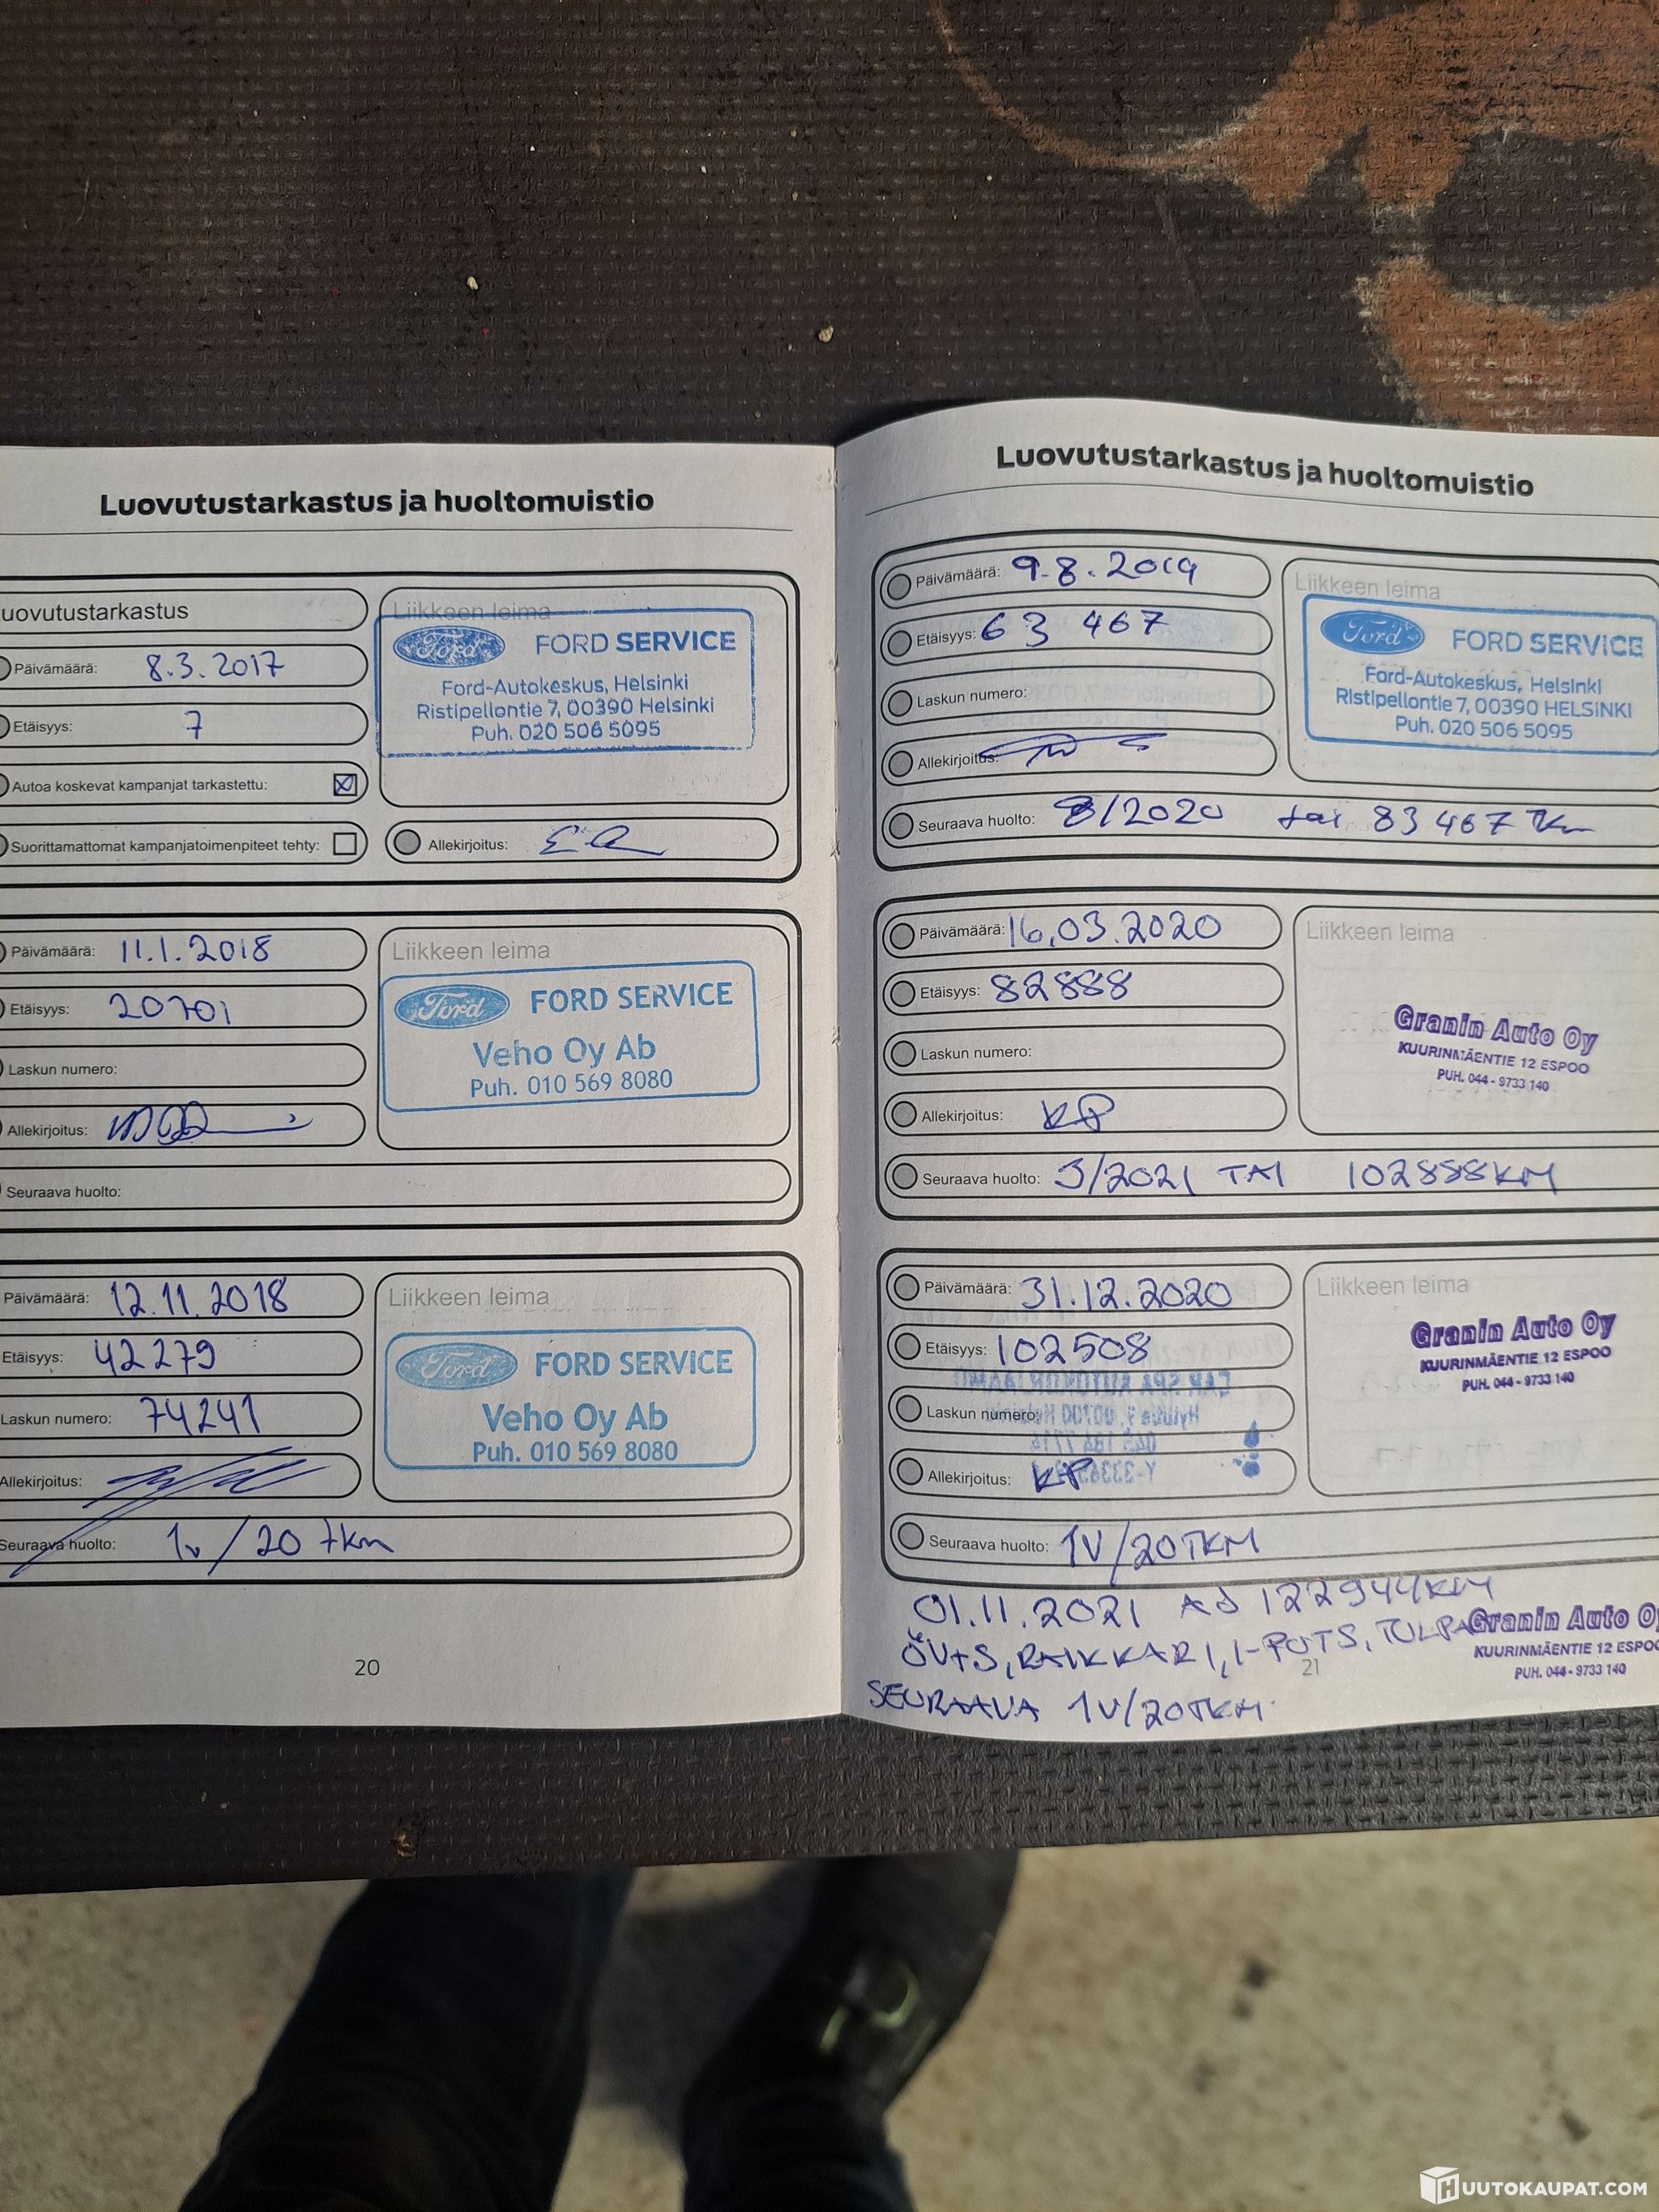 Luovutustarkastus ja huoltomuistio
uovutustarkastus
Päivämäärä: 8.3.2017
Etäisyys: 7
Autoa koskevat kampanjat tarkastettu:
Suorittamattomat kampanjatoimenpiteet tehty:
Liikkeen leima
Ford FORD SERVICE
Ford-Autokeskus, Helsinki
Ristipellontie 7, 00390 Helsinki
Puh. 020 506 5095
Allekirjoitus:
Päivämäärä: 11.1.2018
Etäisyys: 20701
Laskun numero:
Allekirjoitus:
Seuraava huolto:
Liikkeen leima
Ford FORD SERVICE
Veho Oy Ab
Puh. 010 569 8080
Päivämäärä: 12.11.2018
Etäisyys: 42279
Laskun numero: 74241
Allekirjoitus:
Seuraava huolto: 1v/20 tkm
Liikkeen leima
Ford FORD SERVICE
Veho Oy Ab
Puh. 010 569 8080
20
Luovutustarkastus ja huoltomuistio
Päivämäärä: 9.8.2019
Etäisyys: 63 467
Laskun numero:
Allekirjoitus:
Seuraava huolto: 8/2020 tai 83 467 Tkm
Liikkeen leima
Ford FORD SERVICE
Ford-Autokeskus, Helsinki
Ristipellontie 7, 00390 HELSINKI
Puh. 020 506 5095
Päivämäärä: 16.03.2020
Etäisyys: 82888
Laskun numero:
Allekirjoitus: KP
Seuraava huolto: 3/2021 TAI 102888KM
Liikkeen leima
Granin Auto Oy
KUURINMÄENTIE 12 ESPOO
PUH. 044 - 9733 140
Päivämäärä: 31.12.2020
Etäisyys: 102508
Laskun numero:
Allekirjoitus: KP
Seuraava huolto: 1V/20TKM
Liikkeen leima
Granin Auto Oy
KUURINMÄENTIE 12 ESPOO
PUH. 044 - 9733 140
01.11.2021 122944KM
ÖV+S, RAIKKARI, I-PUTS, TULPAT
SEURAAVA 1V/20TKM
Granin Auto Oy
KUURINMÄENTIE 12 ESPOO
PUH. 044 - 9733 140
21
HUUTOKAUPAT.COM